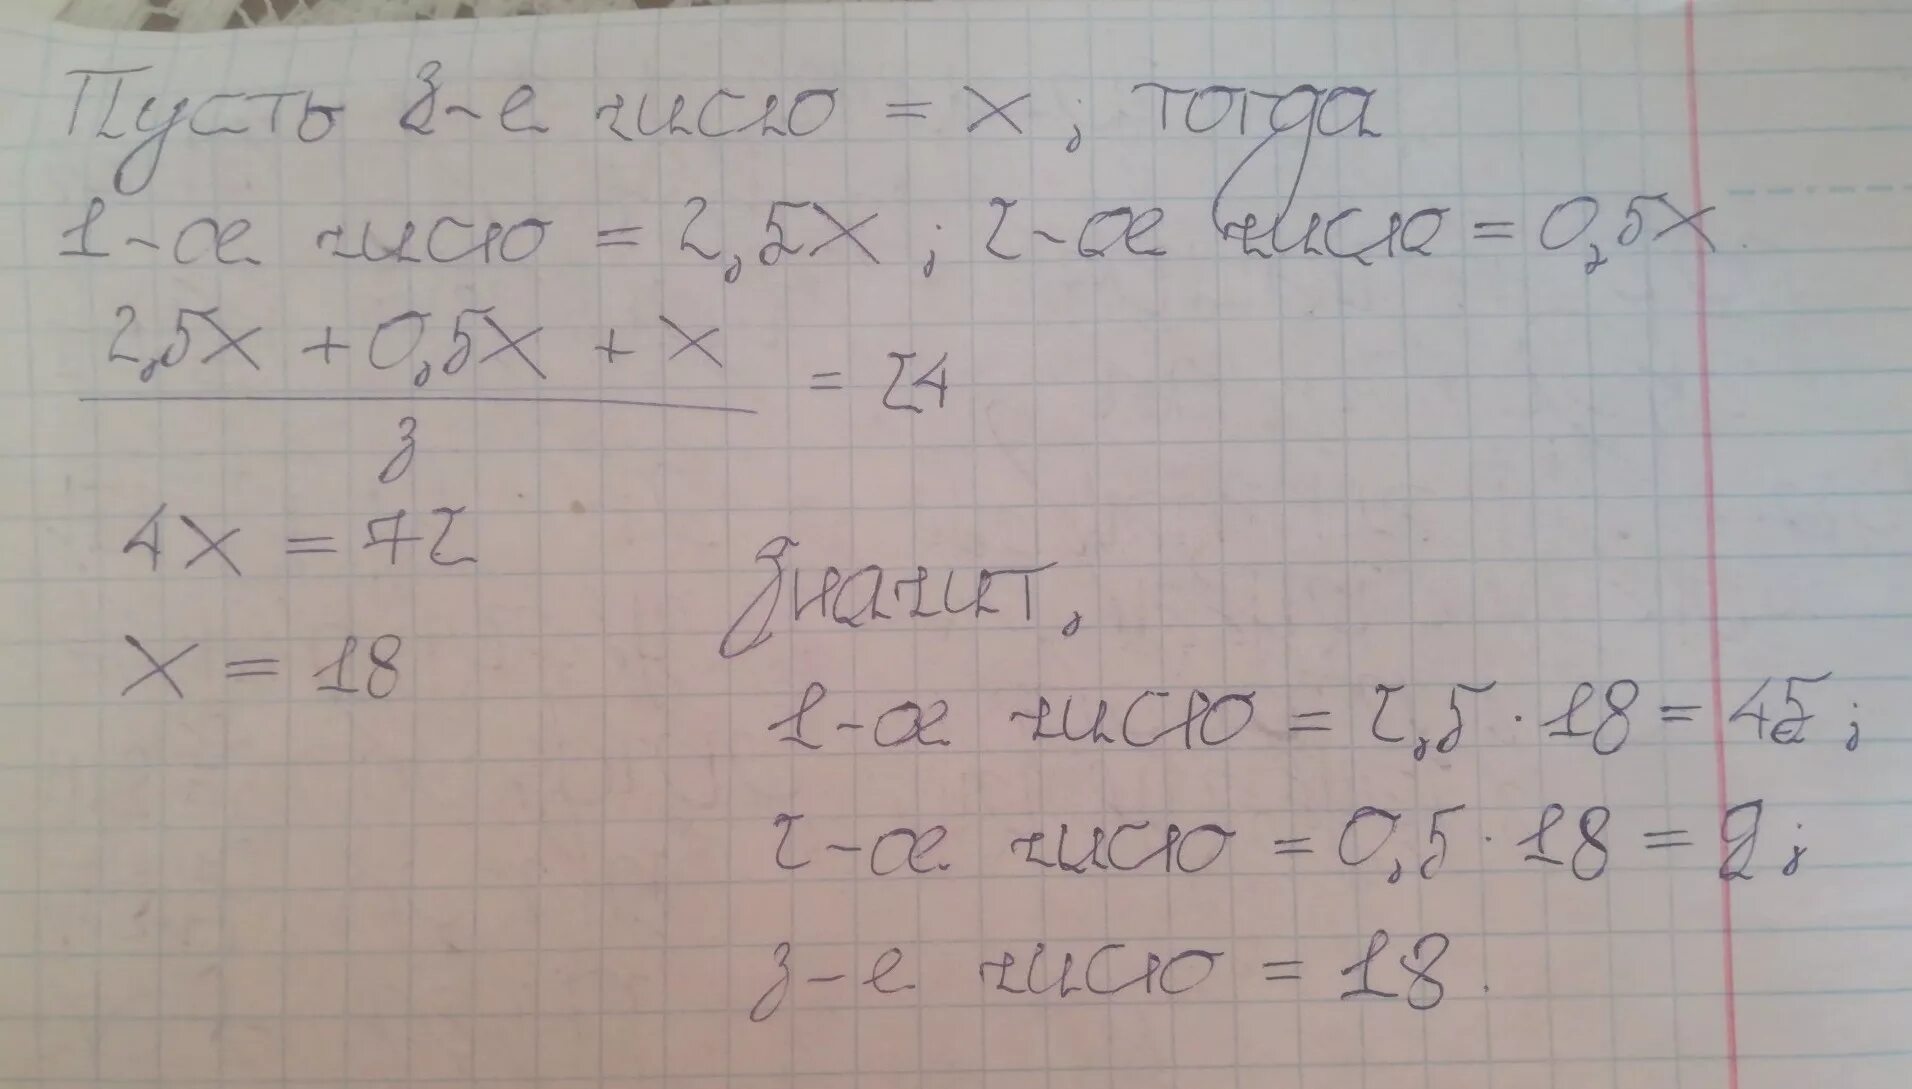 Пусть 3-е число = x; тогда
1-ое число = 2,5x; 2-ое число = 0,5x.
2,5x + 0,5x + x
= 24
3
4x = 72
x = 18
Значит,
1-ое число = 2,5 · 18 = 45;
2-ое число = 0,5 · 18 = 9;
3-е число = 18.